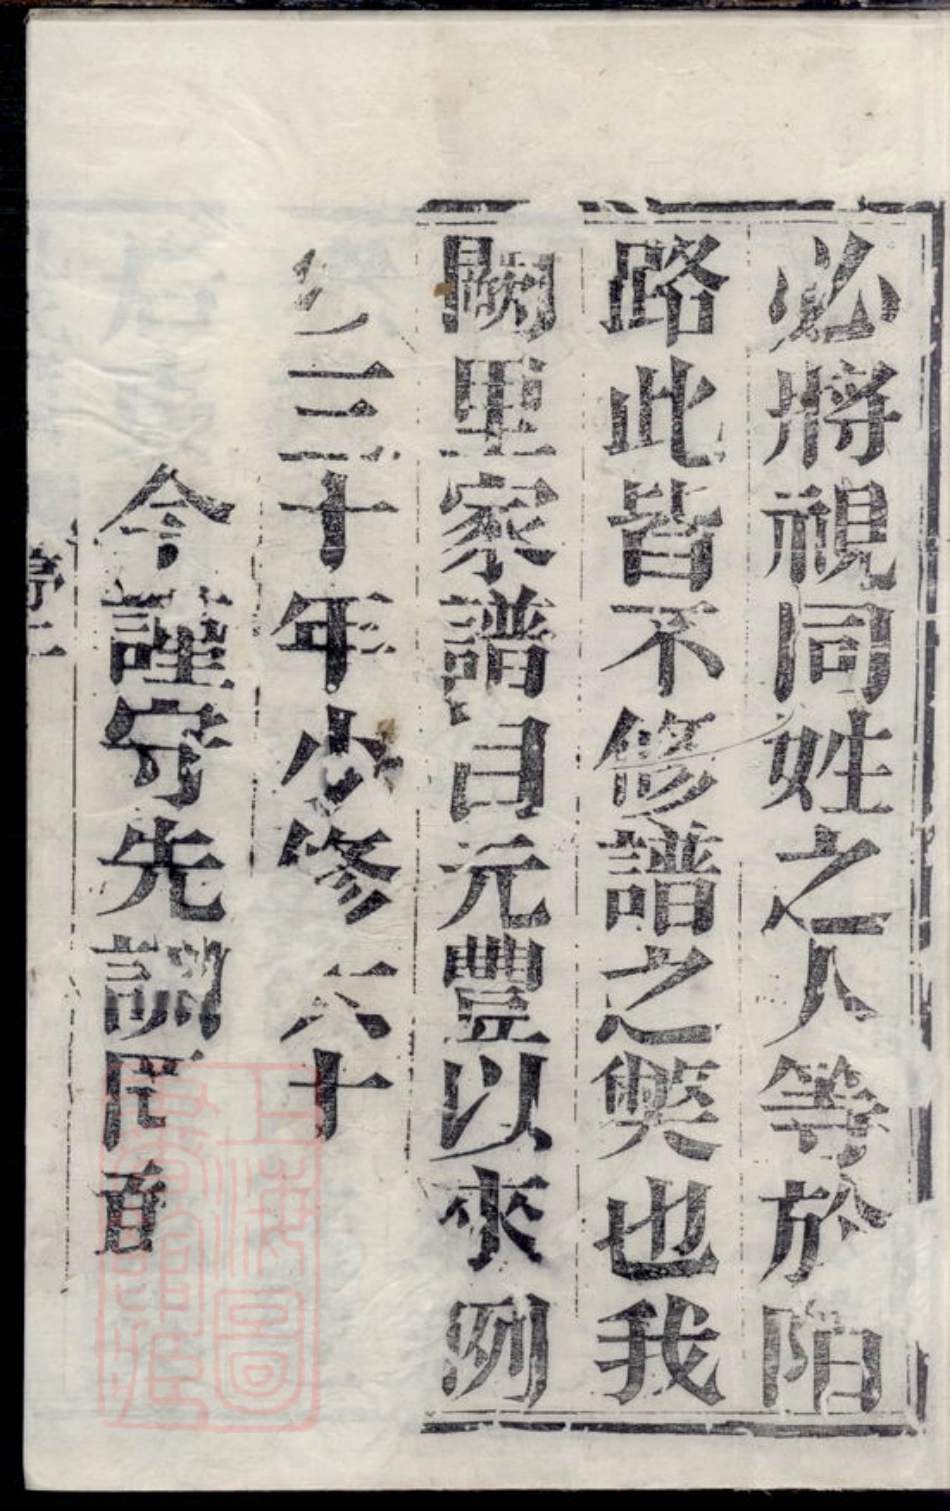 必將視同姓之人等於陌
路此皆不修譜之獘也我
闕里家譜自元豐以來例
三十年小修六十
今謹守先訓
上海圖
書館藏